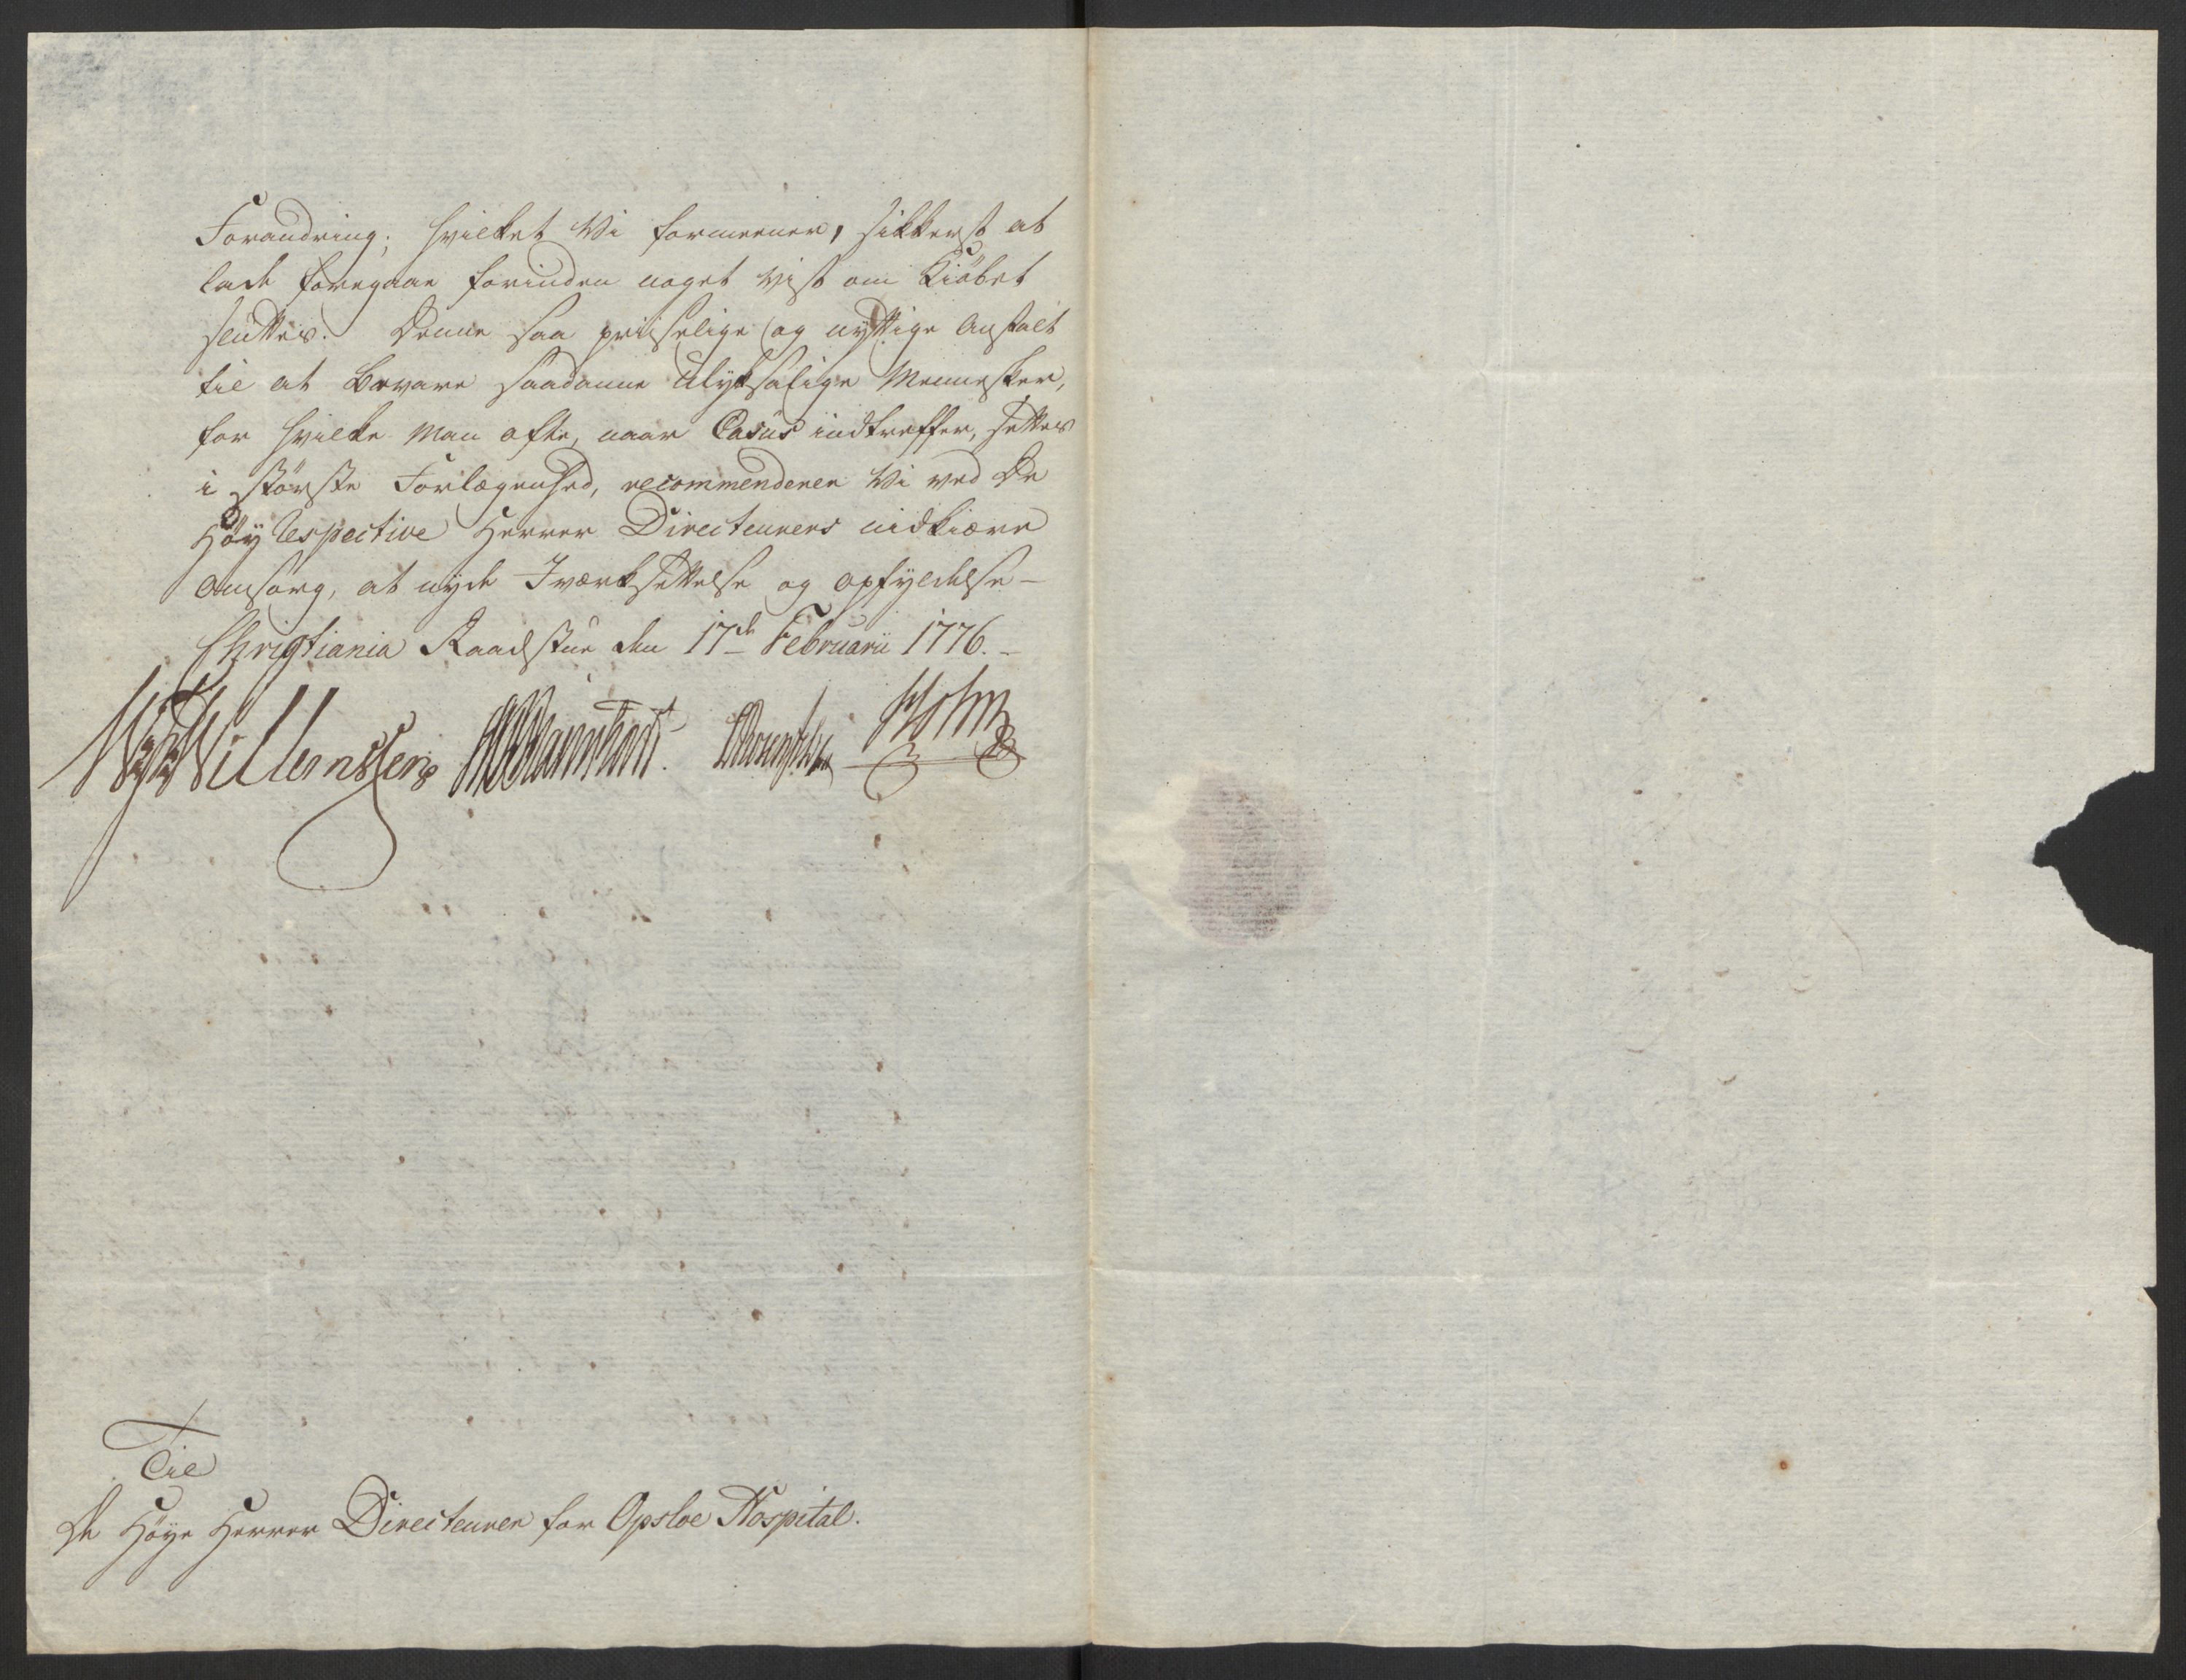 Forandring; hvilket Vi formeener, sikkerst at
lade foregaae forinden noget vist om Kiöbet
sluttes. Denne saa priiselige og nyttige Anstalt
til at bevare saadanne Ulyksalige Mennesker,
for hvilke Man ofte, naar Casus indtreffer, settes
i störste Forlegenhed, recommenderer Vi ved De
Höy respective Herrer Directeurers nidkiære
omsorg, at nyde Iværksettelse og opfyldelse –
Christiania Raadstue den 17de Februarii 1776. –
Willemssen Holm
Til
De Höye Herrer Directeurer for Opsloe Hospital.